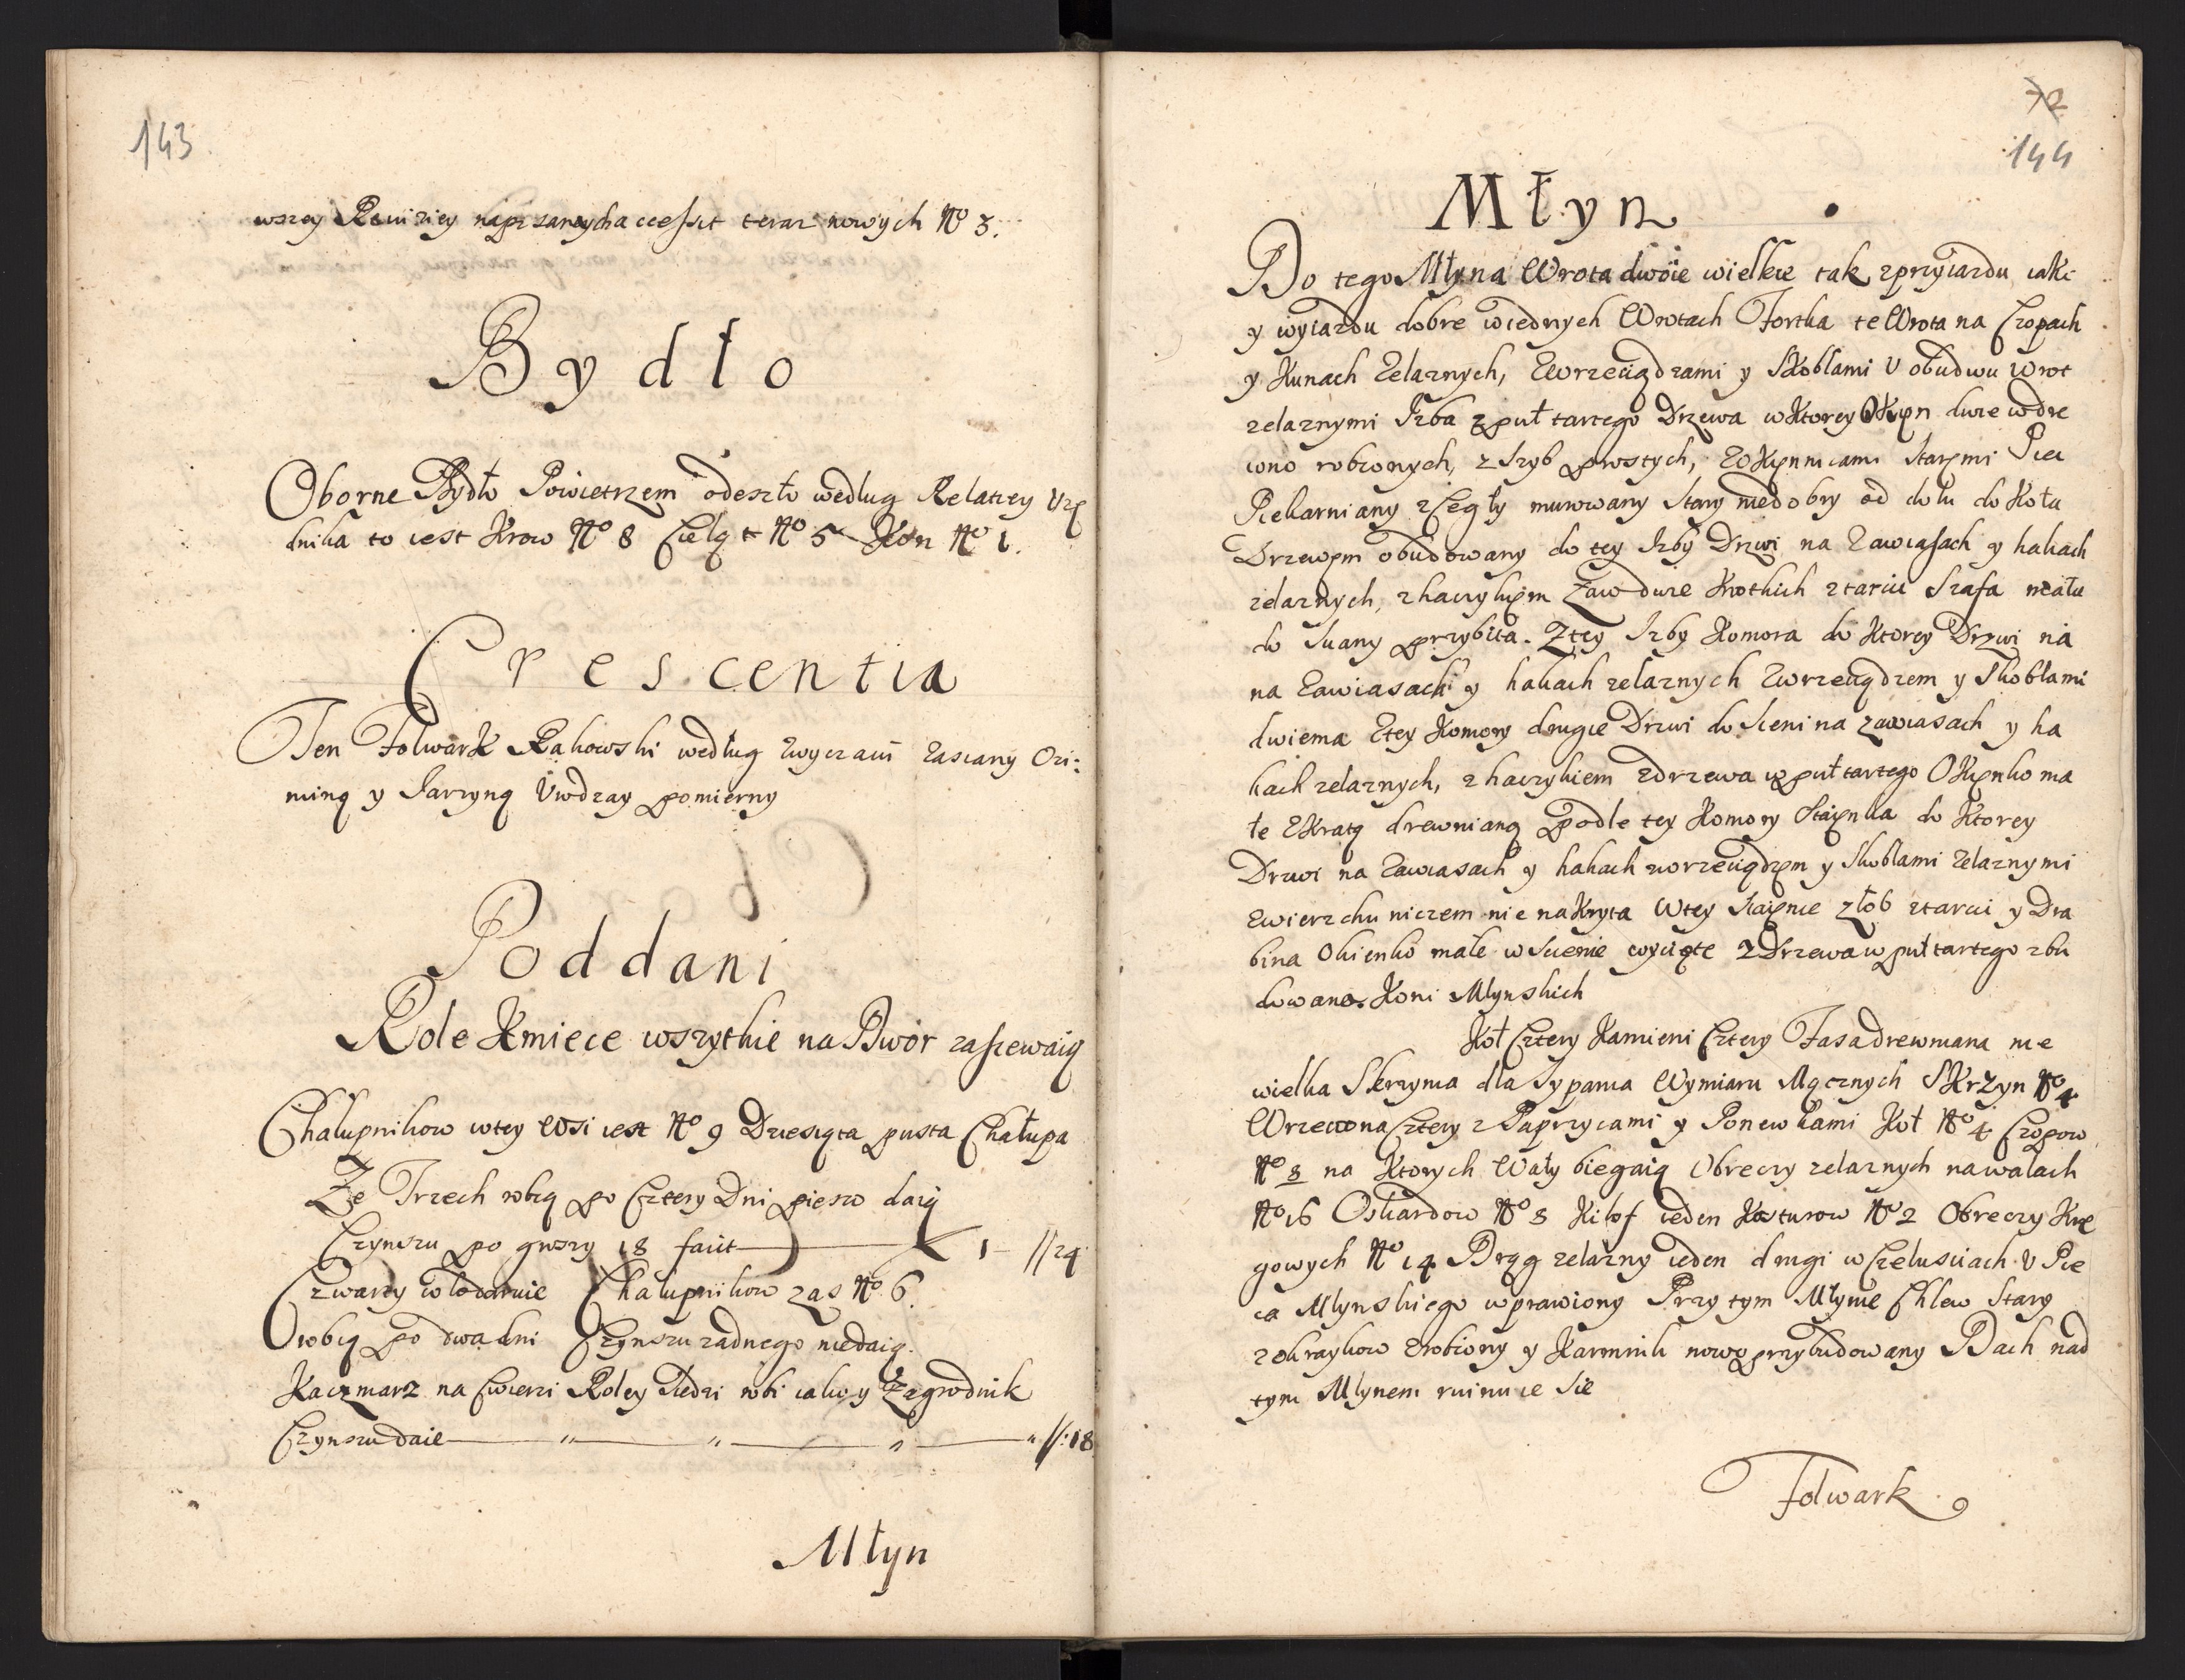 143
wszey Rewiziey napisanych accessit teraz nowych No 3.
Bydło
Oborne Bydło Powietrzem odeszło według Relatiey Urzę
dnika to iest Krow No 8 Cieląt No 5 Kon No 1.
Crescentia
Ten Folwark Rakowski według zwyczaiu zasiany Ozi:
miną y Jarzyną Urodzay pomierny
Poddani
Role Kmiece wszytkie na Dwor zasiewaią
Chałupnikow wtey Wsi iest No 9 Dziesiąta pusta Chałupa
Ze Trzech robią po Cztery Dni pieszo daią
Czynszu po groszy 18 facit 1 // 24
Czwarty włodaruie Chałupnikow zas No 6.
robią po dwa dni Czynszu zadnego niedaią.
Kaczmarz na Cwierzi Roley Siedzi robi iako y Zagrodnik
Czynszu daie //:18
Młyn
72
144
Młyn
Do tego Młyna Wrota dwoie wielkie tak zprzyiazdu iako
y wyiazdu dobre wiednych Wrotach Fortka te Wrota na Czopach
y Kunach Zelaznych, Zwrzeciądzami y Skoblami U obudwu Wrot
zelaznymi Izba zpuł tartego Drzewa wKtorey Okien dwie wdre
wno robionych, z Szyb prostych, zOkiennicami Starymi Piec
Piekarniany zCegły murowany Stary niedobry od dołu do Koła
Drzewem obudowany do tey Izby Drzwi na Zawiasach y hakach
zelaznych, zhaczykiem Ław dwie Krotkich ztarcic Szafa mała
do Sciany przybita. Ztey Izby Komora do Ktorey Drzwi na
na Zawiasach y hakach zelaznych Zwrzeciądzem y Skoblami
dwiema Ztey Komory drugie Drzwi do Sieni na zawiasach y ha
kach zelaznych, z haczykiem zdrzewa wpuł tartego Okienko ma
łe zKratą drewnianą Podle tey Komory Staienka do Ktorey
Drzwi na Zawiasach y hakach zwrzeciądzem y Skoblami Zelaznymi
Zwierzchu niczem nie nakryta Wtey Staience złob ztarcic y Dra
bina Okienko małe w Scienie wycięte z Drzewa w puł tartego zbu
dowana. Koni Młynskich
Koł Cztery Kamieni Cztery Fasa drewniana nie
wielka Skrzynia dla Sypania Wymiaru Mącznych Skrzyn No 4
Wrzeciona Cztery z Paprzycami y Ponewkami Koł No 4 Czopow
No 8 na Ktorych Wały biegaią Obreczy zelaznych na wałach
No 16 Oskardow No 8 Kilof ieden Kosturow No 2 Obreczy Krę
gowych No 14 Drąg zelazny ieden drugi w Czelusciach U Pie
ca Młynskiego wprawiony Przy tym Młynie Chlew Stary
zokraykow Zrobiony y Karmnik nowo przybudowany Dach nad
tym Młynem ruinuie Sie
Folwark